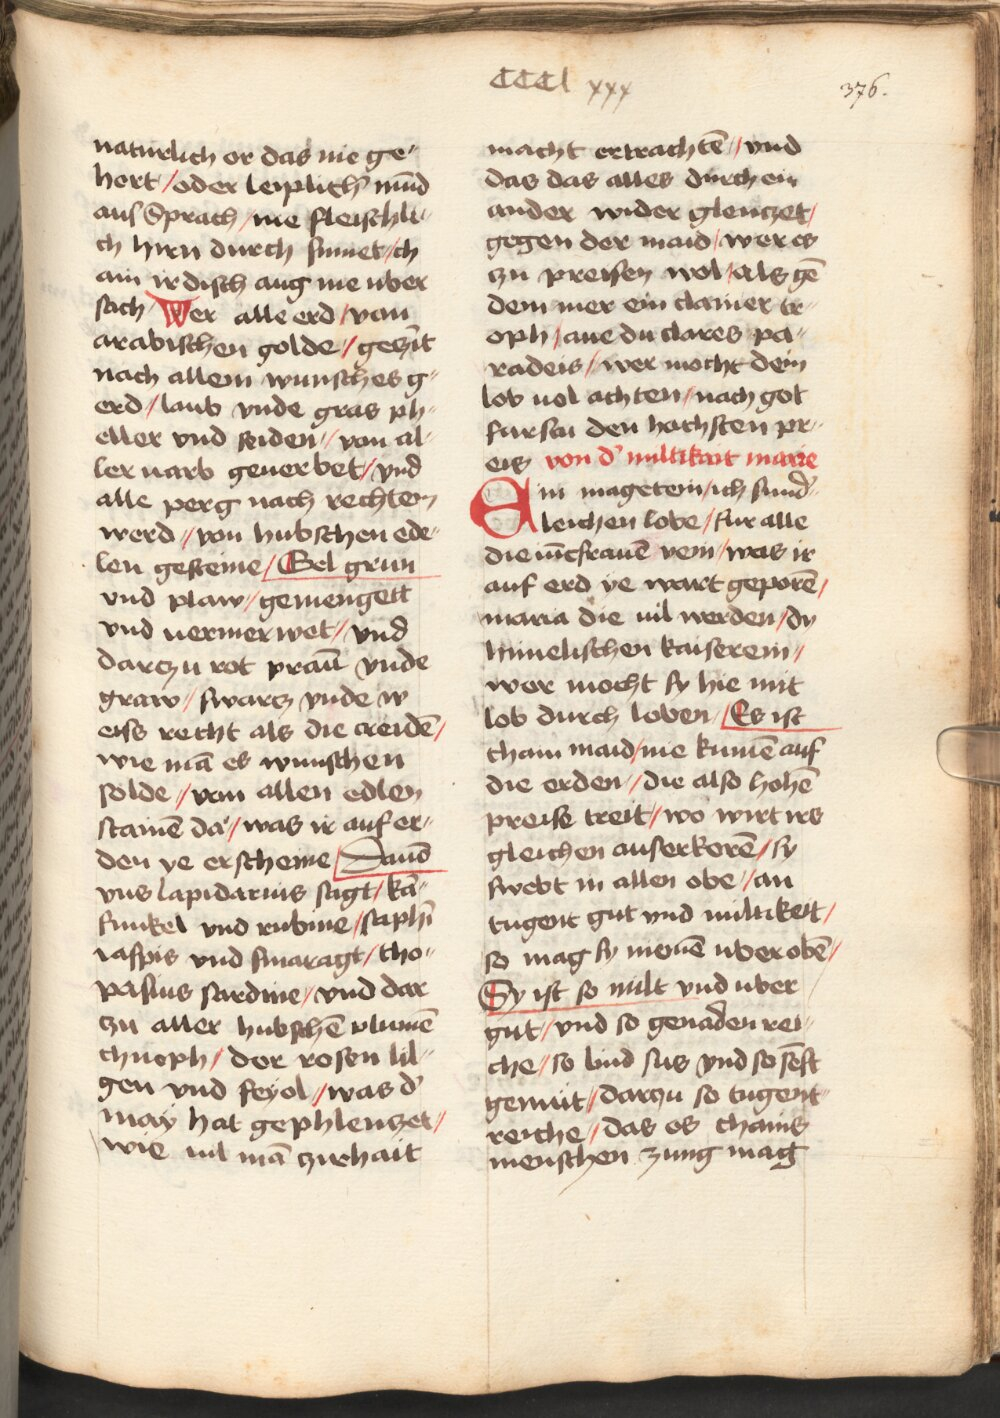 CCCl xxx
376.
naturlich or das nie ge-
hort / oder leiplich' mūd
aus Sprach / nie fleischli-
ch hirn durch sinnet / ch
ain irdisch aug nie uber
sach / Wer alle erd / von
arabischen golde // gezīt
nach allem wunsches g-
erd / laub vnde gras ph-
eller vnd seiden // von al-
ler varb geuerbet / vnd
alle perg nach rechtem
werd // von hubschen ede-
len gesteine / Gel grun
vnd plaw / gemengett
vnd vermerwet / vnd
darczu rot praūn vnde
graw / swarcz vnde w
eiss recht als die creidē /
wie mā es wunschen
solde // vom allen edlen
stainē da / was ir auf er-
den ye erscheine / Dauō
vns lapidarius sagt / kā-
funkel vnd rubine / saphī
iaspis vnd smaragt / tho-
pasius sardine / vnd dar
zu aller hubschē plumē
chnoph / der rosen lil-
gen vnd feyol / was d'
may hat gephlenczet /
wie uil mā zirhait
macht ertrachtē // vnd
das das alles durch ein
ander wider glenczet /
gegen der maid / wer es
zu preisen wol / als gē
dem mer ein clainer tr-
oph / aue du clares pa-
radeis / wer mocht dein
lob uol achten / nach got
fursan den hochsten pr-
eis von d' miltikait marie
Ein magetein / ich sund'-
leichen lobe / fur alle
die iūcfrauē vein / was ir
auf erd ye wart geporē /
maria die uil werden / dy
himelischen kaiserein /
wer mocht sy hie mit
lob durch loben / Es ist
cham maid / nie kumē auf
die erden // die also hohē
preise treit / wo wirt irs
gleichen auserkorē / sy
swebt in allen obe / an
tugent gut vnd miltikeit /
so mag sy niemē uber obē /
Sy ist so milt vnd uber
gut / vnd so genad'en rei-
che / so lind sus vnd so sēft
gemut / darzu so tugent-
reiche / das es chains
menschen zung mag